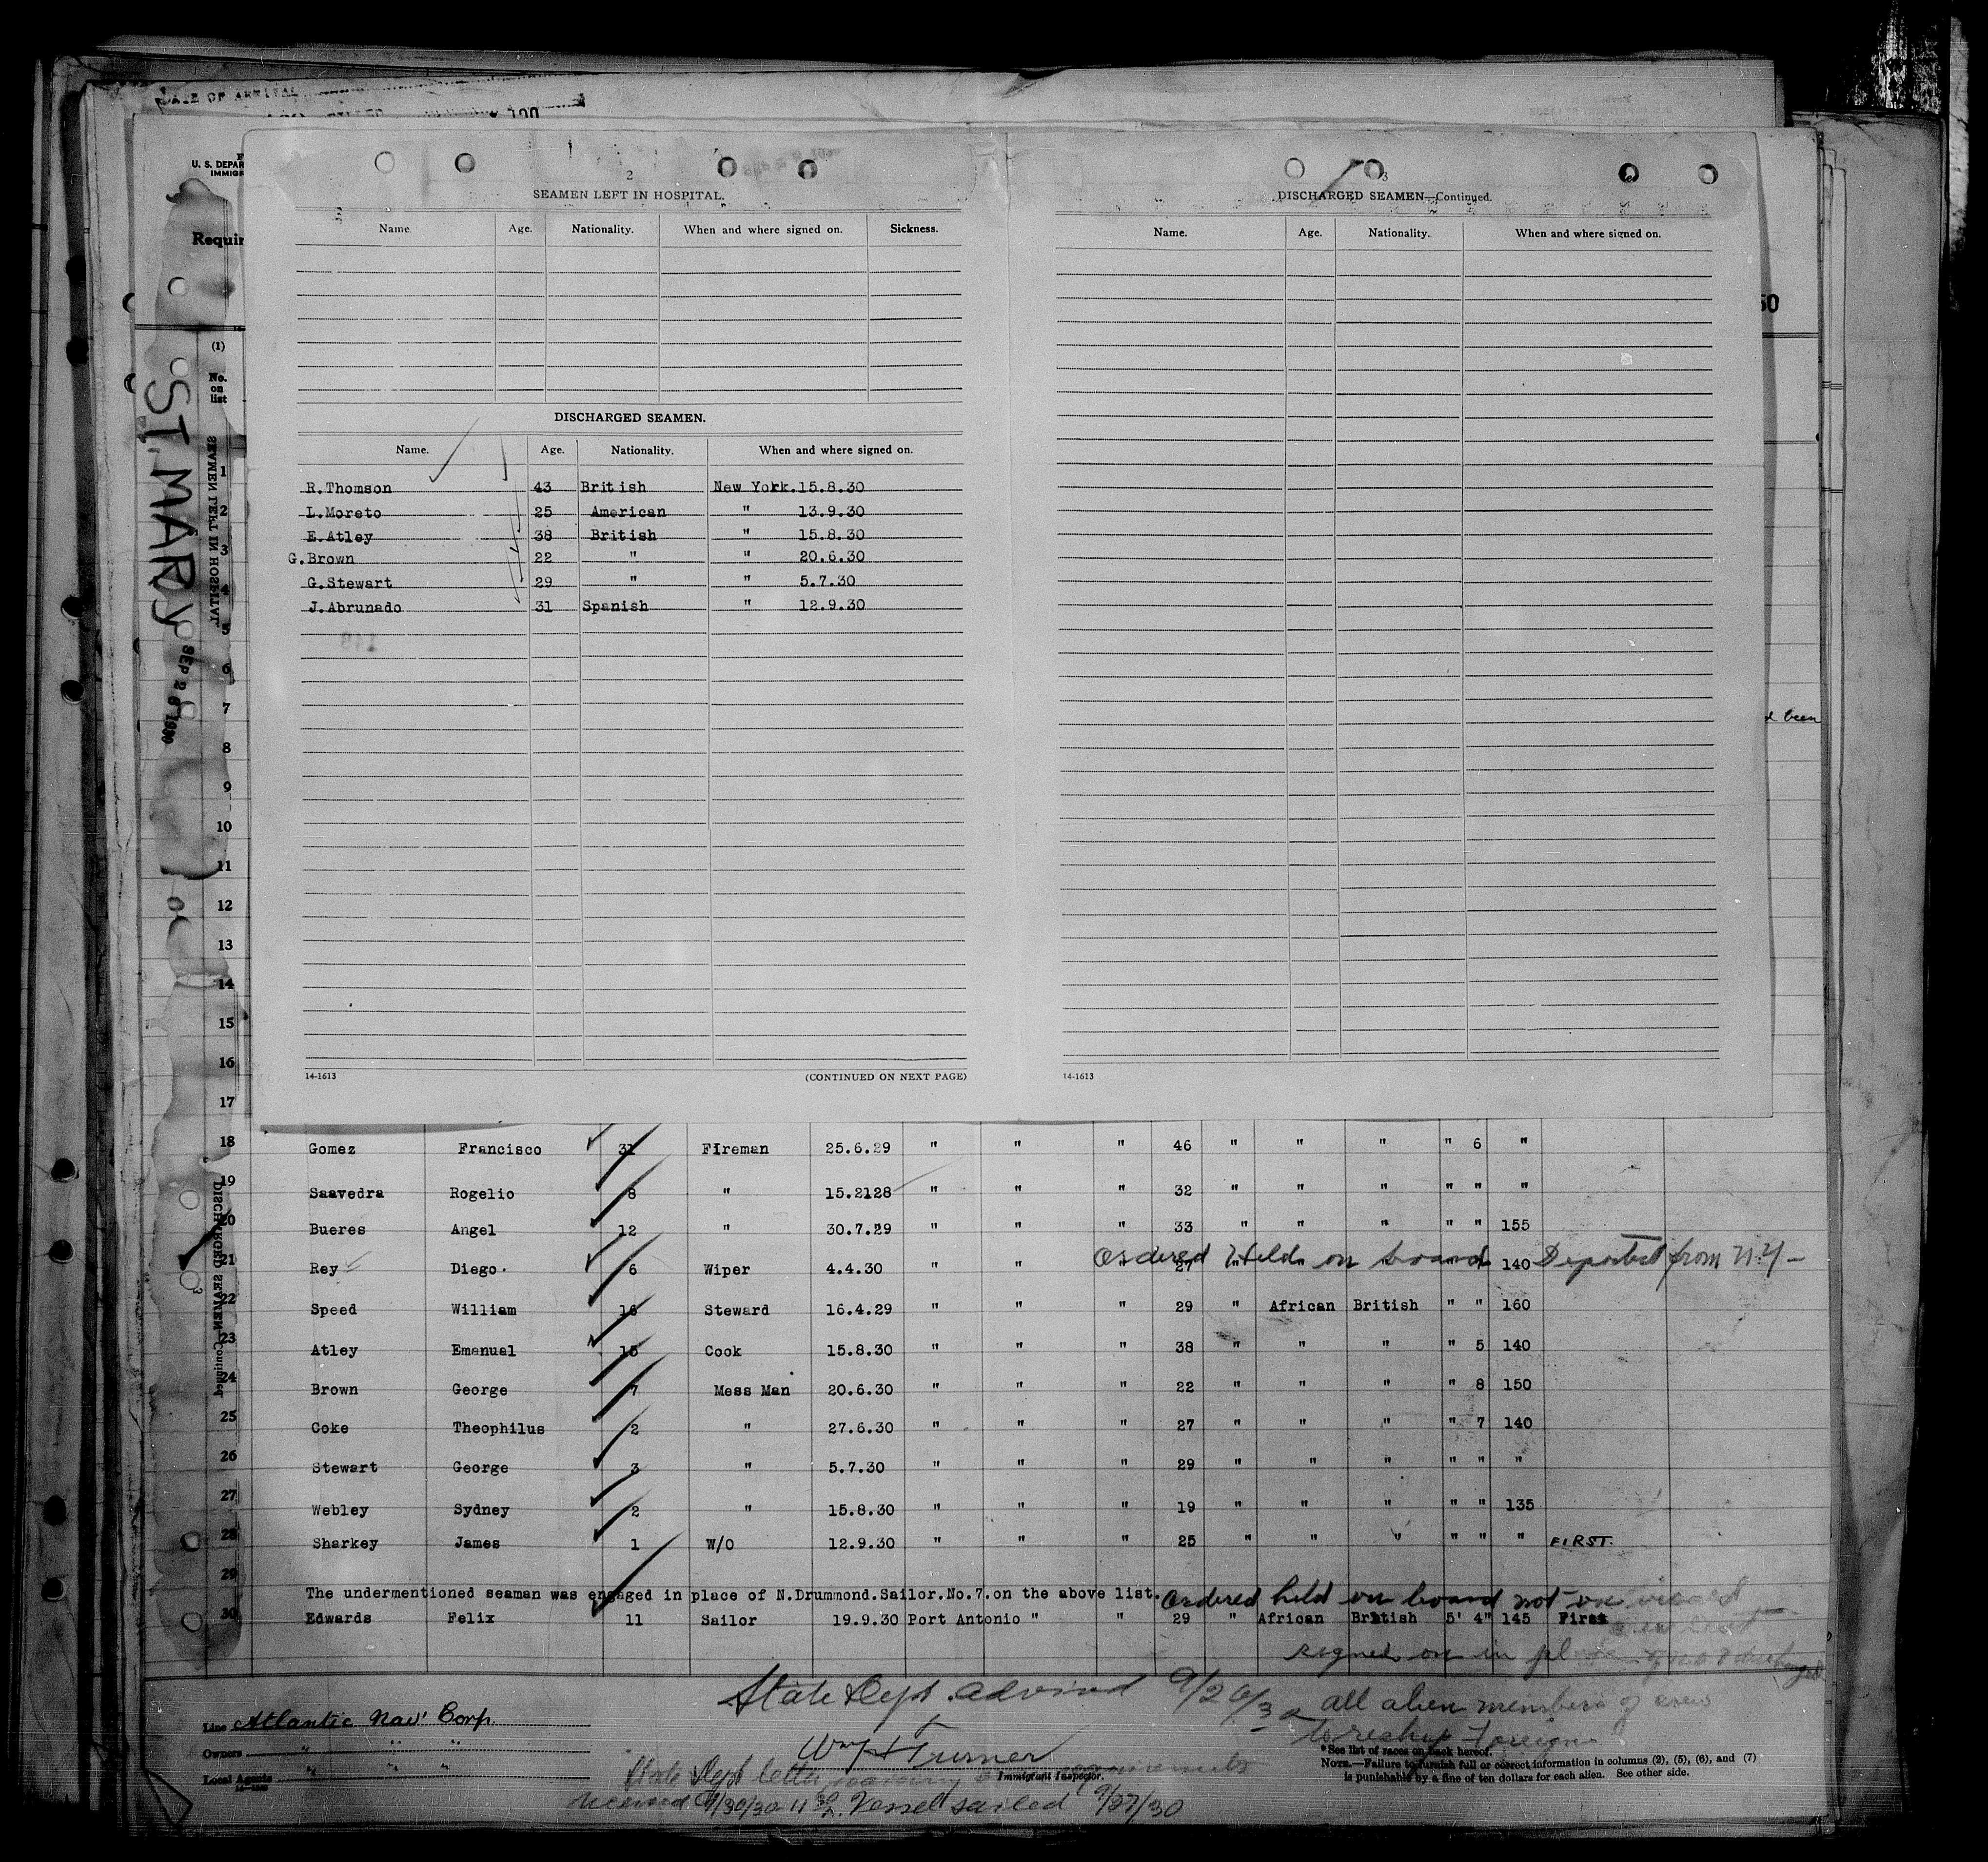 DATE OF ARRIVAL
100
U. S. DEPAR
IMMIGR
Requir
(1)
No.
on
list
ST. MARY
SEP 26 1930
SEAMEN LEFT IN HOSPITAL
DISCHARGED SEAMEN—Continued
50
d been
2
SEAMEN LEFT IN HOSPITAL.
Name Age. Nationality. When and where signed on. Sickness.
DISCHARGED SEAMEN.
Name. Age. Nationality. When and where signed on.
R.Thomson 43 British New York.15.8.30
L.Moreto 25 American " 13.9.30
E.Atley 38 British " 15.8.30
G.Brown 22 " " 20.6.30
G.Stewart 29 " " 5.7.30
J.Abrunado 31 Spanish " 12.9.30
14-1613 (CONTINUED ON NEXT PAGE)
3
DISCHARGED SEAMEN—Continued.
Name. Age. Nationality. When and where signed on.
14-1613
1
2
3
4
5
6
7
8
9
10
11
12
13
14
15
16
17
18 Gomez Francisco 31 Fireman 25.6.29 " " " 46 " " " " 6 "
19 Saavedra Rogelio 8 " 15.2128 " " " 32 " " " " " "
20 Bueres Angel 12 " 30.7.29 " " " 33 " " " " " 155
Ordered Held on board Deported from N.Y-
21 Rey Diego. 6 Wiper 4.4.30 " " " 27 " " " " " 140
22 Speed William 16 Steward 16.4.29 " " " 29 " African British " " 160
23 Atley Emanual 15 Cook 15.8.30 " " " 38 " " " " 5 140
24 Brown George 7 Mess Man 20.6.30 " " " 22 " " " " 8 150
25 Coke Theophilus 2 " 27.6.30 " " " 27 " " " " 7 140
26 Stewart George 3 " 5.7.30 " " " 29 " " " " " "
27 Webley Sydney 2 " 15.8.30 " " " 19 " " " " " 135
28 Sharkey James 1 W/O 12.9.30 " " " 25 " " " " " " FIRST.
29 The undermentioned seaman was engaged in place of N.Drummond.Sailor.No.7.on the above list. Ordered held on board not on visaed
30 Edwards Felix 11 Sailor 19.9.30 Port Antonio " " 29 " African British 5' 4" 145 First
crew list
signed on in place of no 7 discharged
State Dept. advised 9/26/30 all alien members of crew
to reship foreign
Line Atlantic Nav' Corp.
Owners " " "
Local Agents " " "
14-1613
Wm H Turner
Immigrant Inspector.
State Dept letter
received 9/30/30 11 30 A. Vessel sailed 9/27/30
*See list of races on back hereof.
NOTE.—Failure to furnish full or correct information in columns (2), (5), (6), and (7)
is punishable by a fine of ten dollars for each alien. See other side.